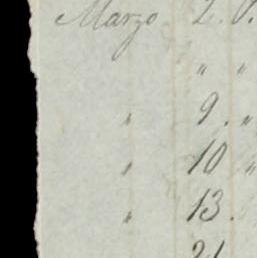 Marzo 2.
" "
" 9. "
" 10 "
" 13.
21